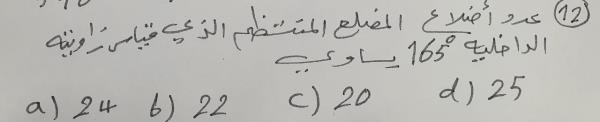 (12) عدد أضلاع المضلع المنتظم الذي قياس زاويته
الداخلية 165° يساوي
a) 24 b) 22 c) 20 d) 25